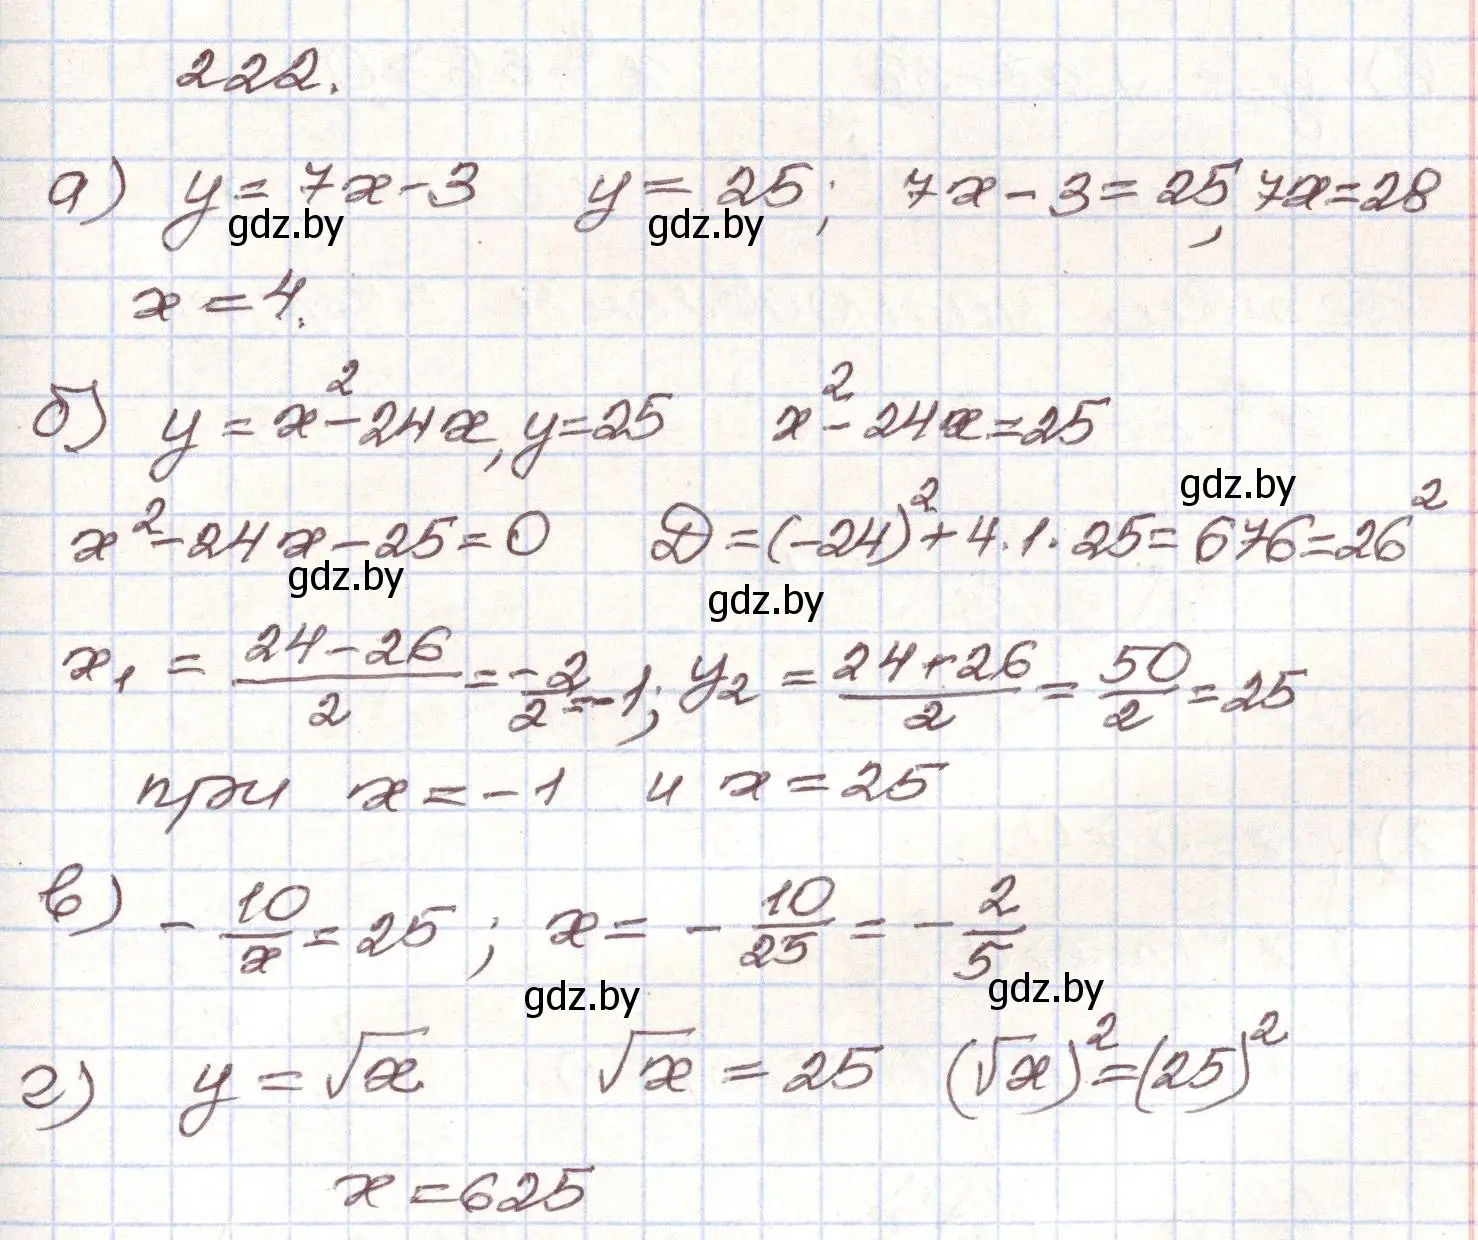 222.
а) y = 7x - 3   y = 25;   7x - 3 = 25, 7x = 28
gdz.by   gdz.by
x = 4.
б) y = x² - 24x, y = 25   x² - 24x = 25
gdz.by
x² - 24x - 25 = 0   D = (-24)² + 4·1·25 = 676 = 26²
gdz.by   gdz.by
x₁ = (24 - 26)/2 = -2/2 = -1; y₂ = (24 + 26)/2 = 50/2 = 25
при x = -1 и x = 25
в) - 10/x = 25; x = - 10/25 = - 2/5
gdz.by   gdz.by
г) y = √x   √x = 25   (√x)² = (25)²
x = 625